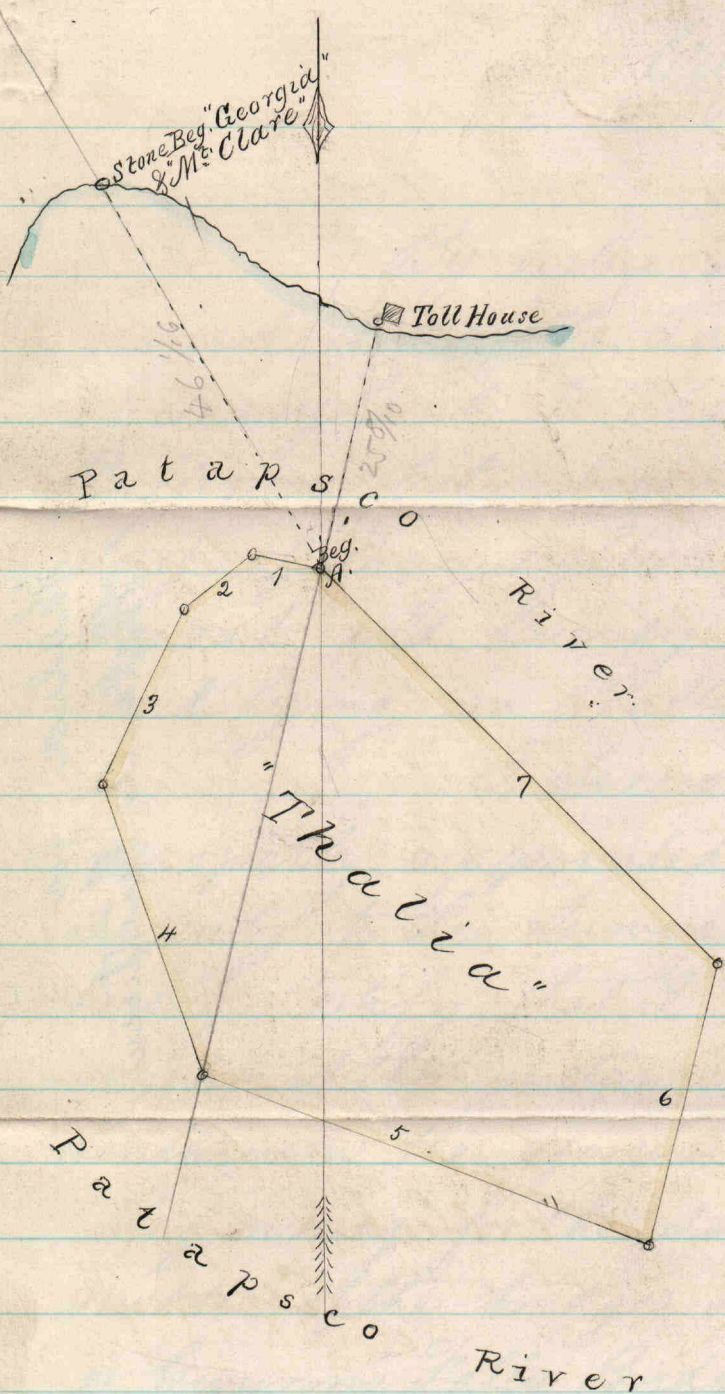 Stone Beg. "Georgia"
& "Mt. Clare"
Toll House
46 1/16
Patapsco
River.
Beg.
A.
1
2
3
"Thalia"
7
4
6
5
Patapsco
River